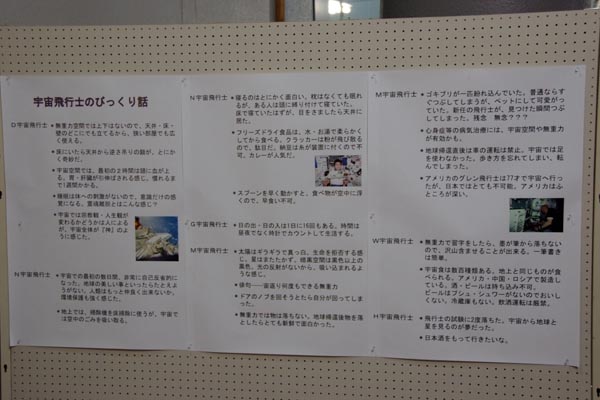 宇宙飛行士のびっくり話
D宇宙飛行士 ★無重力空間では上下はないので、天井・床・
壁のどこにでも立てるから、狭い部屋でも広
く使える。
★床にいたら天井から逆さ吊りの顔が、とにか
く奇妙だ。
★宇宙では、最初の2時間は頭に血が上
る。胃・肝臓が引伸ばされる感じ。慣れるま
で1週間かかる。
★睡眠は体への刺激がないので、意識だけの感
覚になる。霊魂離脱とはこんな感じ？
★宇宙では芸術観・人生観が
変わるかどうかは人によるが
が、宇宙全体が『神』のよう
に感じた。
N宇宙飛行士 ★宇宙での最初の数日間、非常に自己反省的に
なった。地球の美しい事といったらたとえよ
うがない。人間はもっと仲良く出来ないか、
環境保護も強く感じた。
★地上では、掃除機を床掃除に使うが、宇宙で
は空中のごみを吸い取る。
N宇宙飛行士 ★寝るのはとにかく面白い。枕はなくても眠れ
るが、ある人は頭に縛り付けて寝ていた。
床で寝ていたはずが、目をさましたら天井に
居た。
★フリーズドライ食品は、水・お湯で柔らかく
してから食べる。クラッカーは粉が飛び散る
ので、駄目だ。納豆は糸が装置に付くので不
可、カレーが人気だ。
★スプーンを早く動かすと、食べ物が空中に浮
くので、早食い不可。
G宇宙飛行士 ★日の出・日の入は1日に16回もある。時間は
昼夜でなく時計でカウントして生活する。
M宇宙飛行士 ★太陽はギラギラで真っ白。生命を拒否する感
じ、星はまたたかず、暗黒空間は黒色以上の
黒色、光の反射がないから、吸い込まれるよ
うな感じ。
★俳句──宙返り何度もできる無重力
★ドアのノブを回そうとたら自分が回ってしま
った。
★無重力では物は落ちない。地球帰還後物を落
としたらとても新鮮で面白かった。
M宇宙飛行士 ★ゴキブリが一匹紛れ込んでいた。普通ならす
ぐつぶしてしまうが、ペットにして可愛がっ
ていた。新任の飛行士が、見つけた瞬間つぶ
してしまった。残念　無念？？？
★心身症等の病気治療には、宇宙空間や無重力
が有効かも。
★地球帰還直後は車の運転は禁止。宇宙では足
を使わなかった。歩き方を忘れてしまい、転
んでしまった。
★アメリカのグレン飛行士は77才で宇宙へ行っ
たが、日本ではとても不可能。アメリカはふ
ところが深い。
W宇宙飛行士 ★無重力で習字をしたら、墨が筆から落ちない
ので、沢山含ませることが出来る。一筆書き
は簡単。
★宇宙食は数百種類ある。地上と同じものが食
べられる。アメリカ・中国・ロシアで製造し
ている。酒・ビールは持ち込み不可。
ビールはプシュ、シュワーがないのでおいし
くない。冷蔵庫もない。飲酒運転は厳禁。
H宇宙飛行士 ★飛行士の試験に2度落ちた。宇宙から地球と
星を見るのが夢だった。
★日本酒をもって行きたいな。